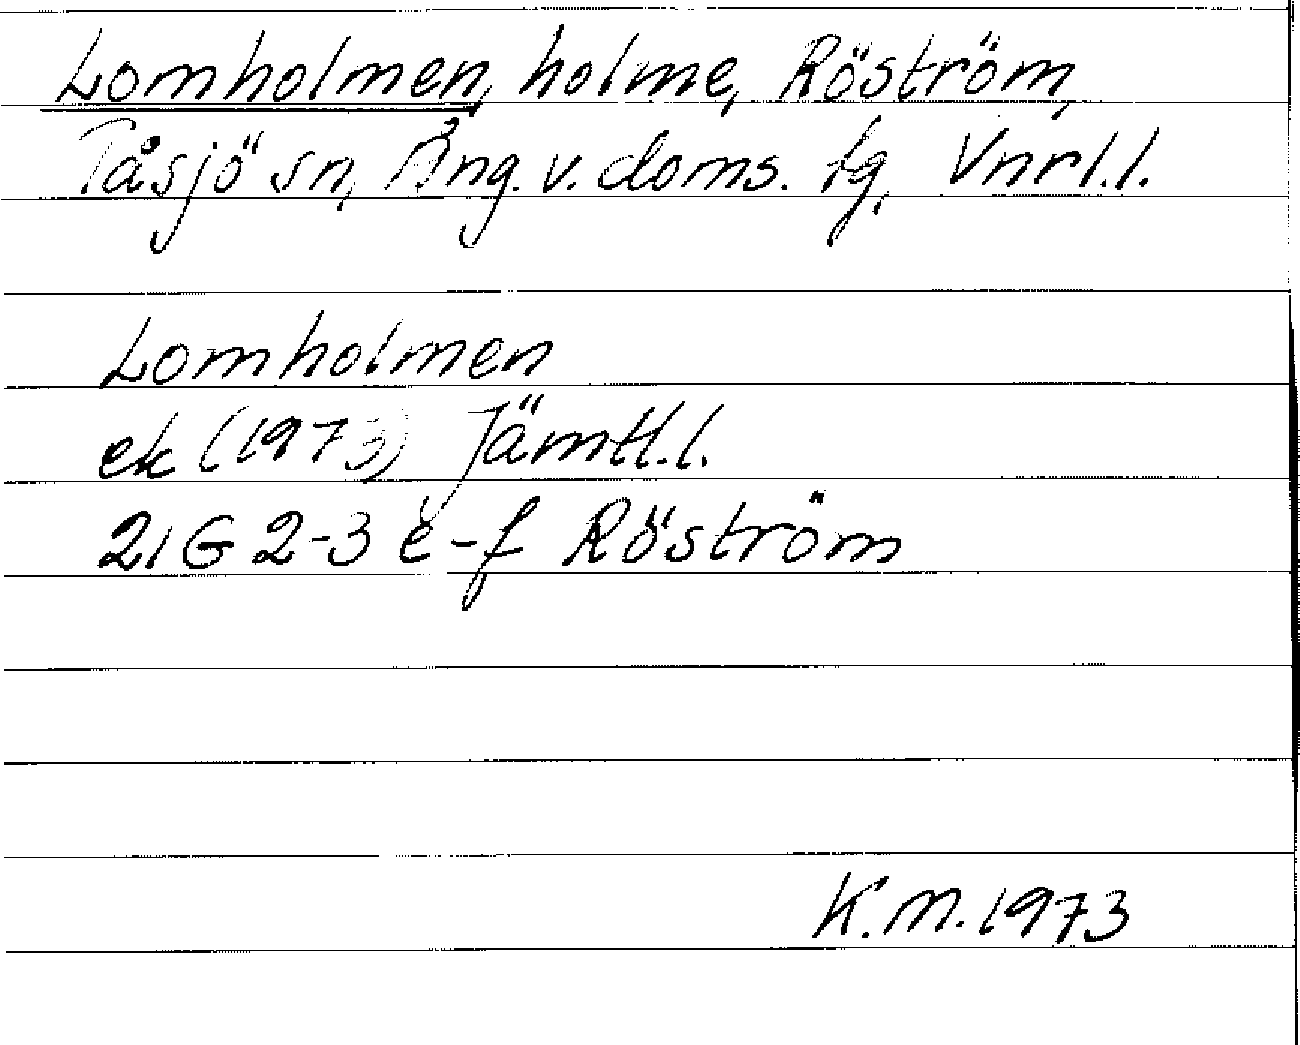 Lomholmen, holme, Röström,
Tåsjö sn, Ång. v. doms. tg, Vnrl.l.
Lomholmen
ek (1973) Jämtl.l.
21G 2-3 e-f Röström
K.M. 1973